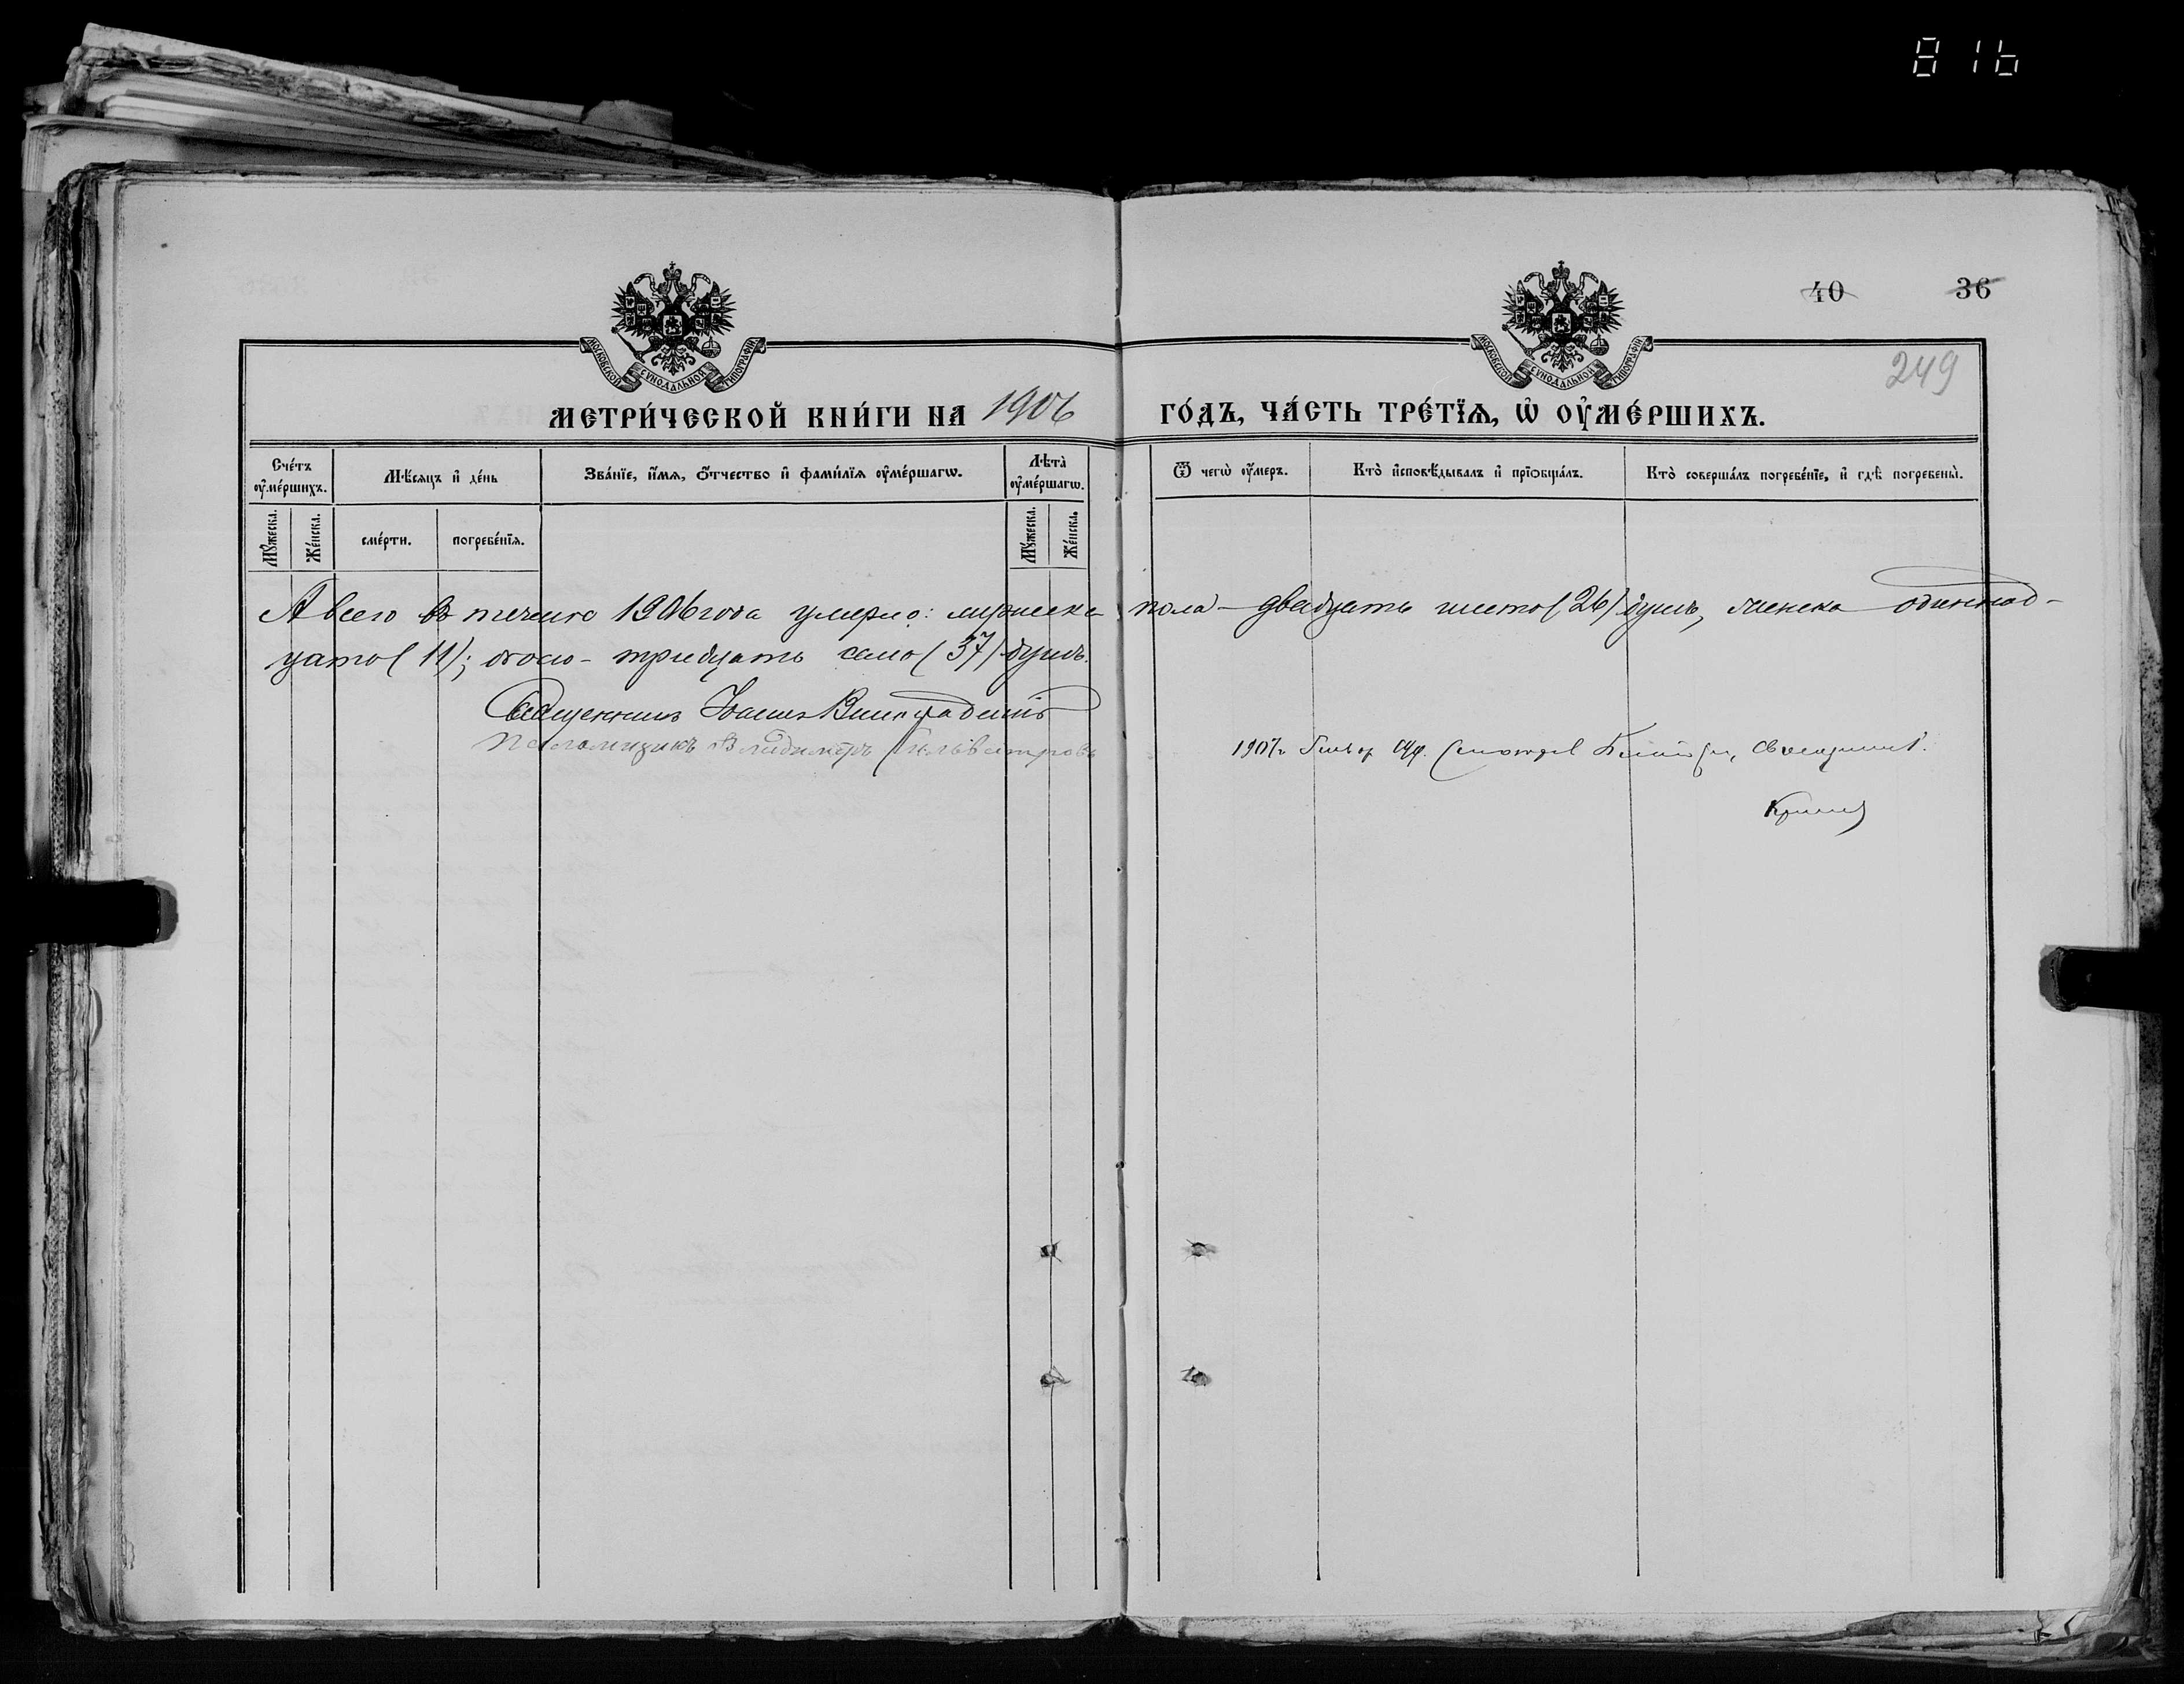 816
40 36
249
МОСКОВСКОЙ СѴНОДАЛЬНОЙ ТИПОГРАФІИ
МОСКОВСКОЙ СѴНОДАЛЬНОЙ ТИПОГРАФІИ
МЕТРИ́ЧЕСКОЙ КНИ́ГИ НА 1906 ГО́ДЪ, ЧА́СТЬ ТРЕ́ТЇѦ, Ѡ҆ ОУ҆МЕ́РШИХЪ.
Счетъ оу҆ме́ршихъ.
Мѣсѧцъ и҆ де́нь
Зва́нїе, и҆́мѧ, ѻ҆́тчество и҆ фами́лїѧ оу҆ме́ршагѡ.
Лѣта̀ оу҆ме́ршагѡ.
Ѿ чегѡ̀ оу҆́меръ.
Кто̀ и҆сповѣ́дывалъ и҆ прїѻбща́лъ.
Кто̀ соверша́лъ погребе́нїе, и҆ гдѣ̀ погребены̀.
Му́жеска.
Же́нска.
сме́рти.
погребе́нїѧ.
Му́жеска.
Же́нска.
А всего въ теченіе 1906 года умерло: мужеска пола - двадцать шесть (26) душъ, женска одиннад-
цать (11); обоего - тридцать семь (37) душъ.
Священникъ Іоаннъ
Псаломщикъ Владимѣръ Сильвестровъ
1907 г. Священникъ